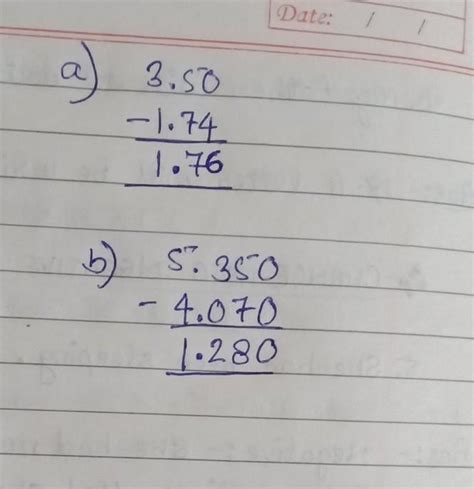 Date: / /
a) 3.50
-1.74
1.76
b) 5.350
- 4.070
1.280